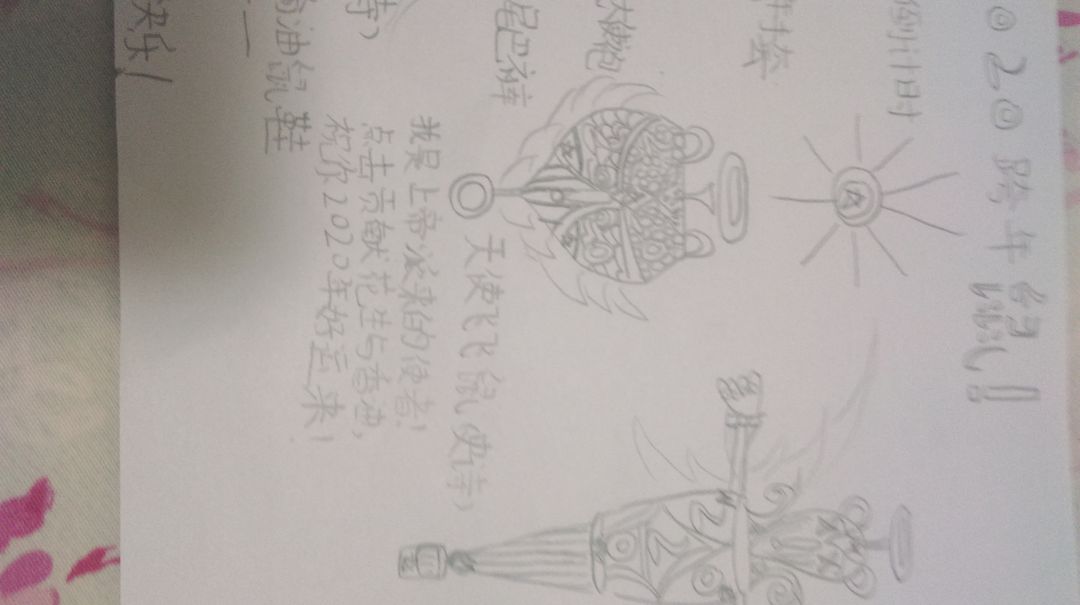 020跨年鼠!
倒计时
尾巴裤
天使飞飞鼠(史诗)
我是上帝派来的使者!
点击贡献花生与香油,
祝你2020年好运来!
油鼠鞋
快乐!